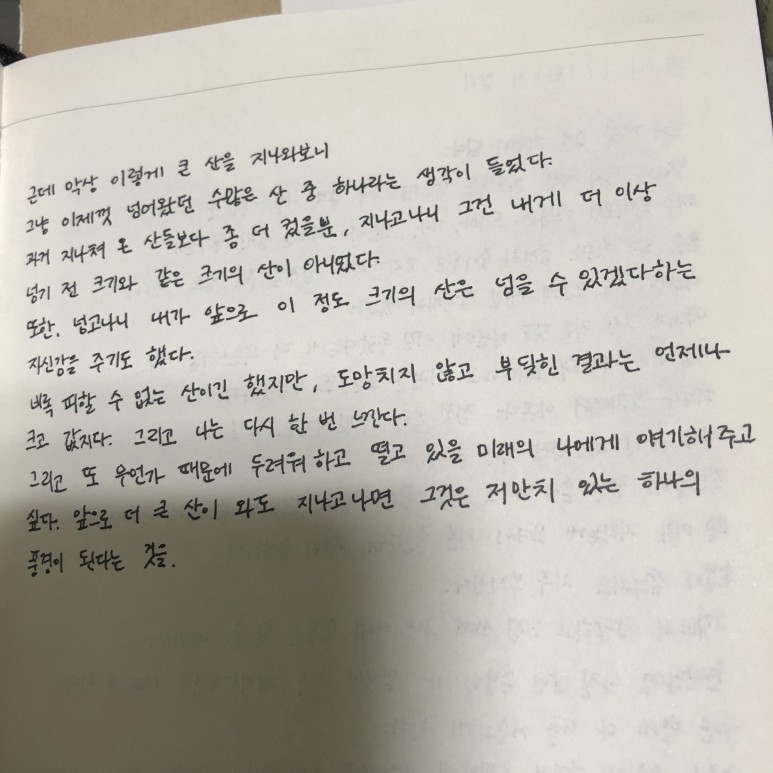 근데 막상 이렇게 큰 산을 지나와보니
그냥 이제껏 넘어왔던 수많은 산 중 하나라는 생각이 들었다.
과거 지나쳐 온 산들보다 좀 더 컸을뿐, 지나고나니 그건 내게 더 이상
넘기 전 크기와 같은 크기의 산이 아니었다.
또한, 넘고나니 내가 앞으로 이 정도 크기의 산은 넘을 수 있겠다하는
자신감을 주기도 했다.
비록 피할 수 없는 산이긴 했지만, 도망치지 않고 부딪힌 결과는 언제나
크고 값지다. 그리고 나는 다시 한 번 느낀다.
그리고 또 무언가 때문에 두려워하고 떨고 있을 미래의 나에게 얘기해주고
싶다. 앞으로 더 큰 산이 와도 지나고나면 그것은 저만치 있는 하나의
풍경이 된다는 것을.